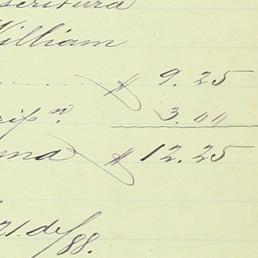 scritura
William
..... $ 9.25
rifn. 3.00
uma $ 12.25
21. de/88.